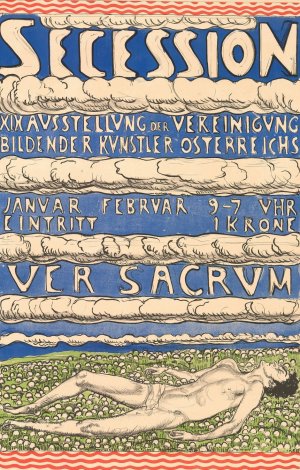 SECESSION
XIX AUSSTELLUNG DER VEREINIGUNG
BILDENDER KVNSTLER OSTERREICHS
JANVAR FEBRVAR 9-7 VHR
EINTRITT 1 KRONE
VER SACRVM